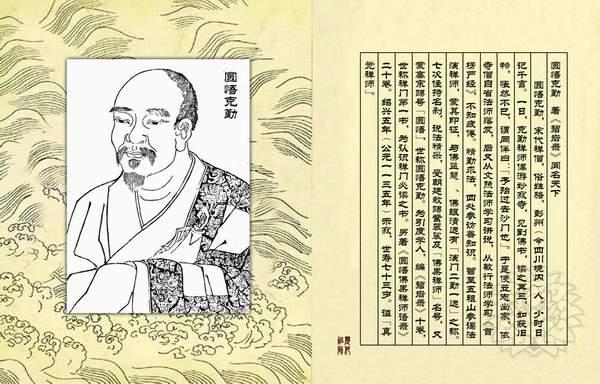 圆悟克勤
圆悟克勤 著《碧岩录》闻名天下
圆悟克勤，宋代禅僧，俗姓骆，彭州（今四川境内）人，少时日
记千言。一日，克勤禅师偶游妙寂寺，见到佛书，读之再三，如获旧
物，怅然不已，谓同伴曰：“予殆过去沙门也”。于是便立志出家，依
寺僧自省法师落发，后又从文照法师学习讲说，从敏行法师学习《首
楞严经》，不知疲倦，精勤求法，四处参访善知识。曾至五祖山参谒法
演禅师，蒙其印证，与佛监慧、佛眼清远有“演门二勤一远”之称。
七次住持名刹，说法精采，受朝廷敕赐紫袈裟及“佛果禅师”名号，又
蒙高宗赐号“圆悟”，世称圆悟克勤。为引度学人，编《碧岩录》十卷，
世称禅门第一书，为认识禅门必读之书。另著《圆悟佛果禅师语录》
二十卷。绍兴五年（公元一一三五年）示寂，世寿七十三岁，谥“真
觉禅师”。